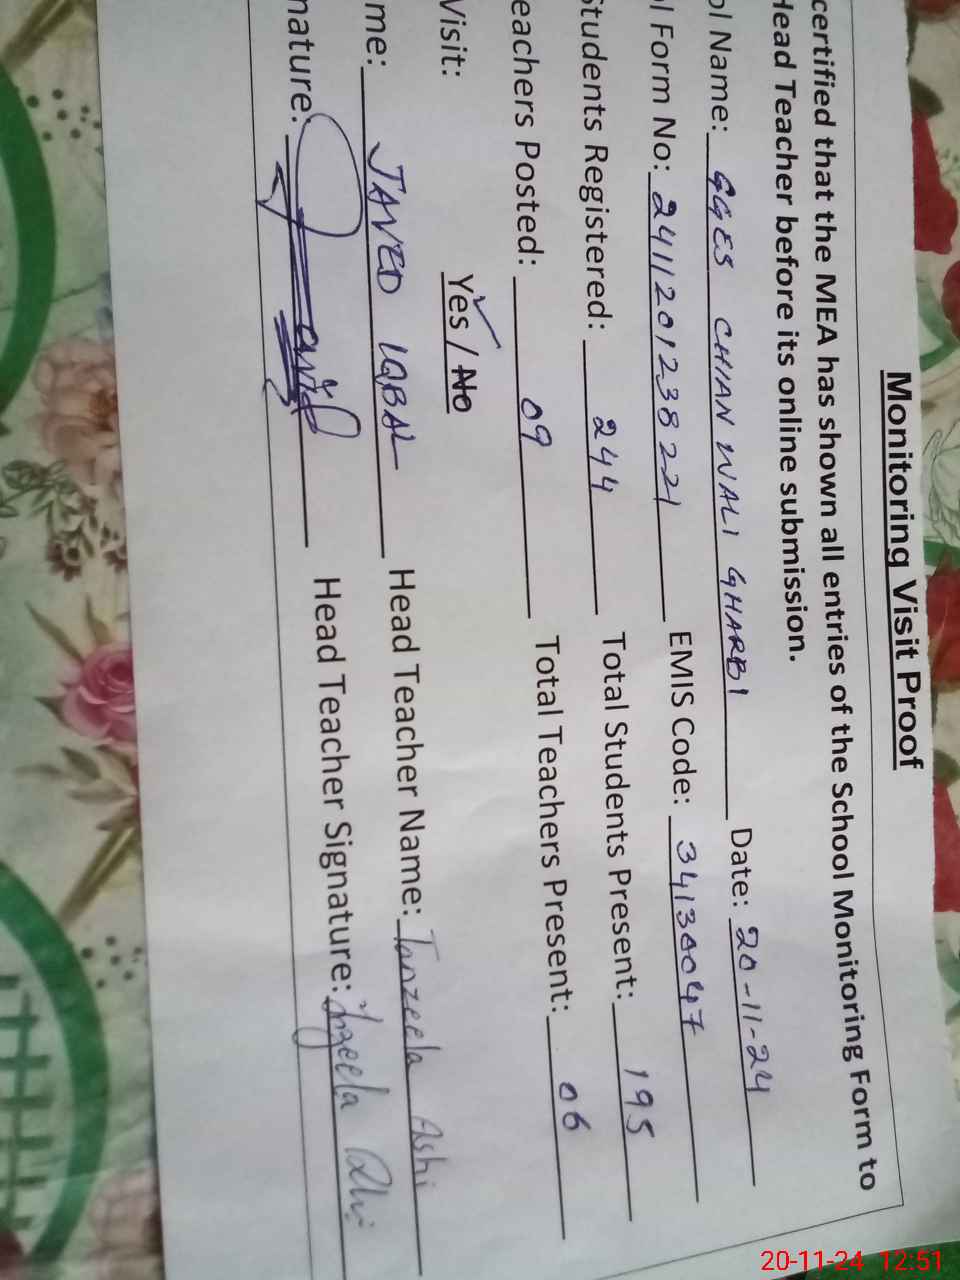 Monitoring Visit Proof
certified that the MEA has shown all entries of the School Monitoring Form to
Head Teacher before its online submission.
ol Name: GGES CHIAN WALI GHARBI Date: 20-11-24
l Form No: 2411201238221 EMIS Code: 34130047
Students Registered: 244 Total Students Present: 195
eachers Posted: 09 Total Teachers Present: 06
Visit: Yes / No
me: JAVED IQBAL Head Teacher Name: Tanzeela Ashi
nature: Head Teacher Signature:
20-11-24 12:51